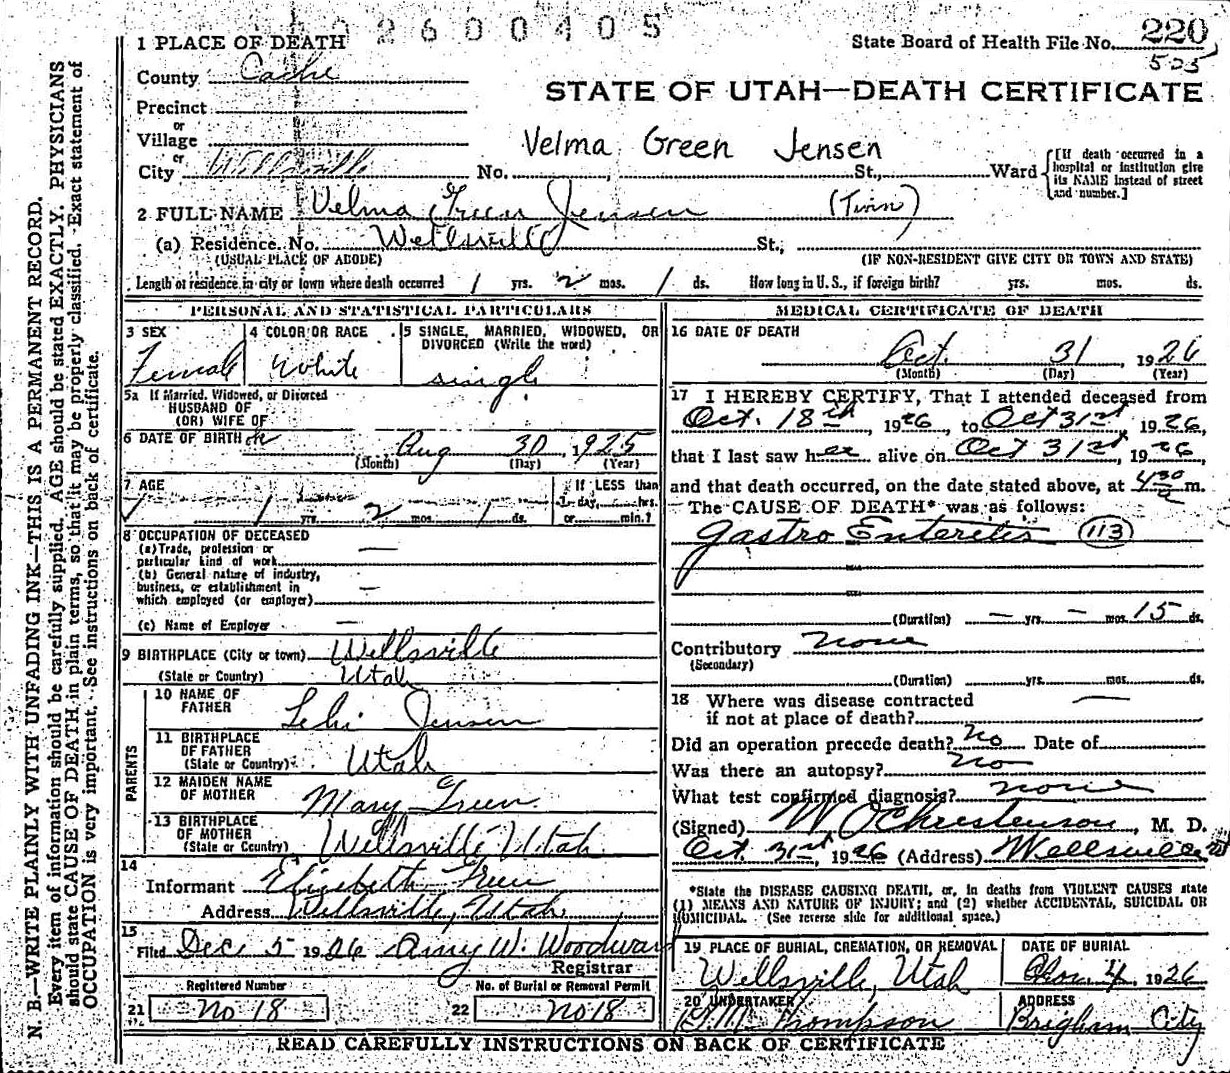 2600405
1 PLACE OF DEATH
State Board of Health File No. 220
525
County Cache
STATE OF UTAH—DEATH CERTIFICATE
Precinct
or
Village
Velma Green Jensen
or
City Wellsville No. St., Ward
[If death occurred in a hospital or institution give its NAME instead of street and number.]
2 FULL NAME Velma Green Jensen (Twin)
(a) Residence. No. Wellsville St.,
(USUAL PLACE OF ABODE) (IF NON-RESIDENT GIVE CITY OR TOWN AND STATE)
Length of residence in city or town where death occurred 1 yrs. 2 mos. 1 ds. How long in U. S., if foreign birth? yrs. mos. ds.
PERSONAL AND STATISTICAL PARTICULARS
3 SEX
Female
4 COLOR OR RACE
White
5 SINGLE, MARRIED, WIDOWED, OR DIVORCED (Write the word)
single
5a If Married, Widowed, or Divorced
HUSBAND OF
(OR) WIFE OF
6 DATE OF BIRTH Aug 30, 1925
(Month) (Day) (Year)
7 AGE
1 yrs. 2 mos. 1 ds.
If LESS than
1 day, hrs.
or min.?
8 OCCUPATION OF DECEASED
(a) Trade, profession or
particular kind of work —
(b) General nature of industry,
business, or establishment in
which employed (or employer) —
(c) Name of Employer —
9 BIRTHPLACE (City or town) Wellsville
(State or Country) Utah
PARENTS
10 NAME OF
FATHER Lehi Jensen
11 BIRTHPLACE
OF FATHER
(State or Country) Utah
12 MAIDEN NAME
OF MOTHER Mary Green
13 BIRTHPLACE
OF MOTHER
(State or Country) Wellsville Utah
14
Informant Elizabeth Green
Address Wellsville, Utah
15
Filed Dec 5 1926 Amy W. Woodward
Registrar
Registered Number
21 No 18
No. of Burial or Removal Permit
22 No 18
MEDICAL CERTIFICATE OF DEATH
16 DATE OF DEATH
Oct. 31, 1926
(Month) (Day) (Year)
17 I HEREBY CERTIFY, That I attended deceased from
Oct. 18th, 1926, to Oct 31st, 1926,
that I last saw her alive on Oct 31st, 1926,
and that death occurred, on the date stated above, at 4:30 m.
The CAUSE OF DEATH* was as follows:
Gastro Enteritis (113)
(Duration) — yrs. — mos. 15 ds.
Contributory none
(Secondary)
(Duration) yrs. mos. ds.
18 Where was disease contracted
if not at place of death? —
Did an operation precede death? No Date of
Was there an autopsy? No
What test confirmed diagnosis? none
(Signed) W O Christenson, M. D.
Oct. 31st, 1926 (Address) Wellsville
*State the DISEASE CAUSING DEATH, or, in deaths from VIOLENT CAUSES state
(1) MEANS AND NATURE OF INJURY; and (2) whether ACCIDENTAL, SUICIDAL OR
HOMICIDAL. (See reverse side for additional space.)
19 PLACE OF BURIAL, CREMATION, OR REMOVAL
Wellsville, Utah
DATE OF BURIAL
Nov 4, 1926
20 UNDERTAKER
Thompson
ADDRESS
Brigham City
READ CAREFULLY INSTRUCTIONS ON BACK OF CERTIFICATE
N. B.—WRITE PLAINLY WITH UNFADING INK—THIS IS A PERMANENT RECORD.
Every item of information should be carefully supplied. AGE should be stated EXACTLY. PHYSICIANS
should state CAUSE OF DEATH in plain terms, so that it may be properly classified. Exact statement of
OCCUPATION is very important. See instructions on back of certificate.